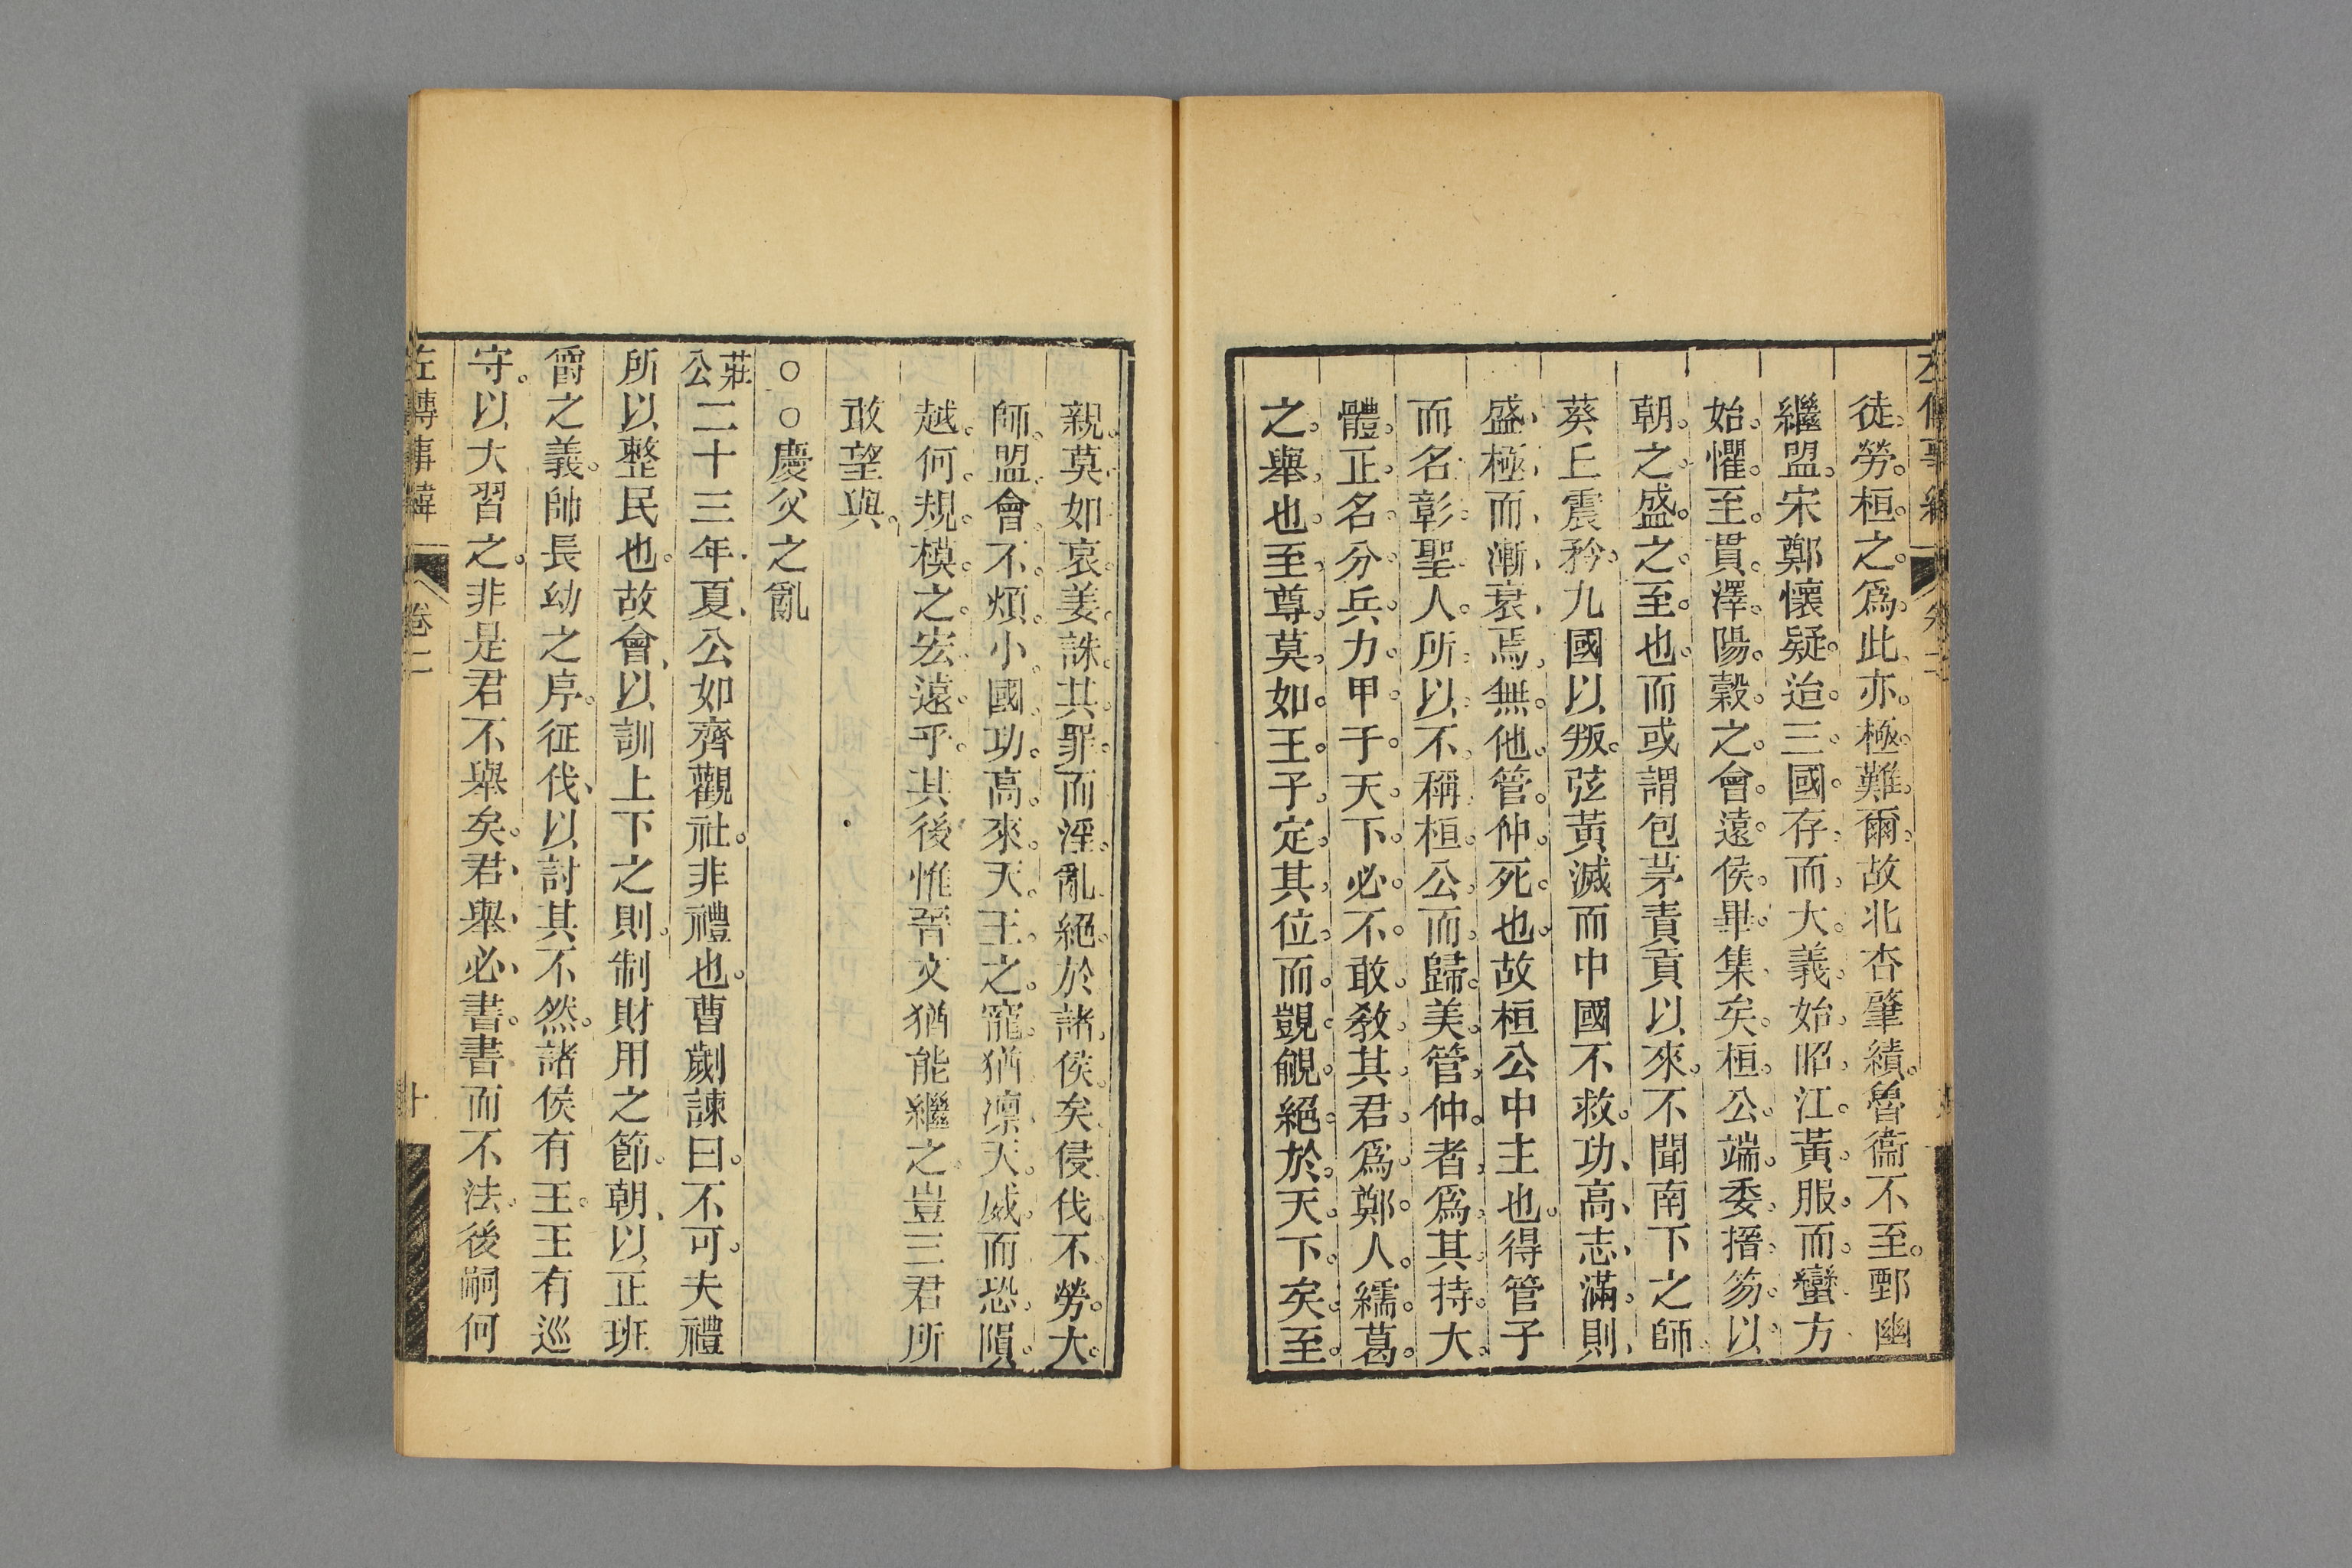 左傳事緯
卷二
徒勞桓之爲此亦極難爾故北杏肇績魯衞不至鄄幽
繼盟宋鄭懷疑迨三國存而大義始昭江黃服而蠻方
始懼至貫澤陽穀之會遠侯畢集矣桓公端委搢笏以
朝之盛之至也而或謂包茅責貢以來不聞南下之師
葵丘震矜九國以叛弦黃滅而中國不救功高志滿則
盛極而漸衰焉無他管仲死也故桓公中主也得管子
而名彰聖人所以不稱桓公而歸美管仲者爲其持大
體正名分兵力甲于天下必不敢敎其君爲鄭人繻葛
之舉也至尊莫如王子定其位而覬覦絕於天下矣至
親莫如哀姜誅其罪而淫亂絕於諸侯矣侵伐不勞大
師盟會不煩小國功高來天王之寵猶凜天威而恐隕
越何規模之宏遠乎其後惟晉文猶能繼之豈三君所
敢望與
○○慶父之亂
莊公二十三年夏公如齊觀社非禮也曹劌諫曰不可夫禮
所以整民也故會以訓上下之則制財用之節朝以正班
爵之義帥長幼之序征伐以討其不然諸侯有王王有巡
守以大習之非是君不舉矣君舉必書書而不法後嗣何
左傳事緯
卷二
十